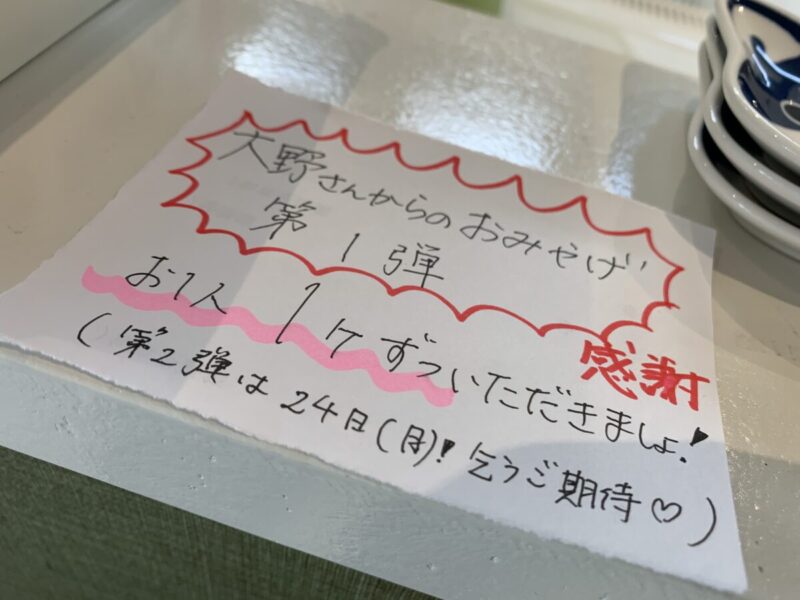 大野さんからのおみやげ
第1弾
お1人 1ケずついただきましょ!
感謝
(第2弾は24日(月)! 乞うご期待♡)